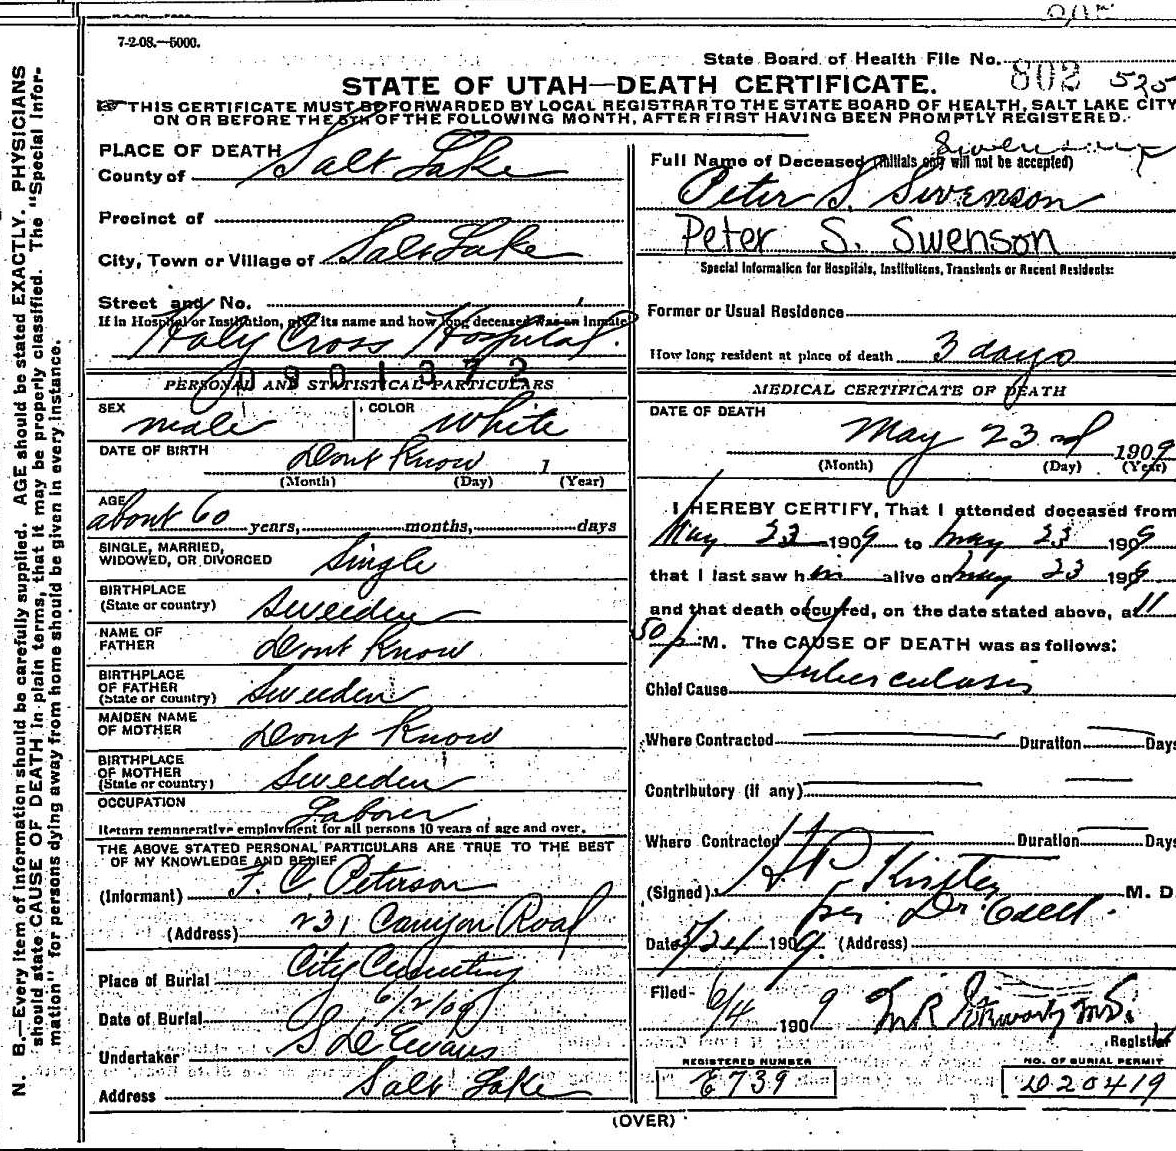 7-2-08.—5000.
State Board of Health File No. 802 525
STATE OF UTAH—DEATH CERTIFICATE.
THIS CERTIFICATE MUST BE FORWARDED BY LOCAL REGISTRAR TO THE STATE BOARD OF HEALTH, SALT LAKE CITY
ON OR BEFORE THE 5TH OF THE FOLLOWING MONTH, AFTER FIRST HAVING BEEN PROMPTLY REGISTERED.
PLACE OF DEATH
County of Salt Lake
Precinct of
City, Town or Village of Salt Lake
Street and No.
If in Hospital or Institution, give its name and how long deceased was an inmate
Holy Cross Hospital.
0901372
PERSONAL AND STATISTICAL PARTICULARS
SEX male COLOR White
DATE OF BIRTH Dont Know 1
(Month) (Day) (Year)
AGE about 60 years, months, days
SINGLE, MARRIED,
WIDOWED, OR DIVORCED Single
BIRTHPLACE
(State or country) Sweeden
NAME OF
FATHER Dont Know
BIRTHPLACE
OF FATHER
(State or country) Sweeden
MAIDEN NAME
OF MOTHER Dont Know
BIRTHPLACE
OF MOTHER
(State or country) Sweeden
OCCUPATION Laborer
Return remunerative employment for all persons 10 years of age and over.
THE ABOVE STATED PERSONAL PARTICULARS ARE TRUE TO THE BEST
OF MY KNOWLEDGE AND BELIEF
(Informant) F. C. Peterson
(Address) 231 Canyon Road
Place of Burial City Cemetery
Date of Burial 6/2/09
Undertaker S D Evans
Address Salt Lake
Full Name of Deceased (Initials only will not be accepted)
Peter S. Swenson
Peter S. Swenson
Special Information for Hospitals, Institutions, Transients or Recent Residents:
Former or Usual Residence
How long resident at place of death 3 days
MEDICAL CERTIFICATE OF DEATH
DATE OF DEATH
May 23rd 1909
(Month) (Day) (Year)
I HEREBY CERTIFY, That I attended deceased from
May 23 1909 to May 23 1909
that I last saw him alive on May 23 1909
and that death occurred, on the date stated above, at 11
50 p M. The CAUSE OF DEATH was as follows:
Chief Cause Tuberculosis
Where Contracted Duration Days
Contributory (if any)
Where Contracted Duration Days
(Signed) M. D.
per Dr.
Date 5/24 1909. (Address)
Filed 6/4 1909
Registrar
REGISTERED NUMBER
E739
NO. OF BURIAL PERMIT
D20419
(OVER)
N. B.—Every item of information should be carefully supplied. AGE should be stated EXACTLY. PHYSICIANS
should state CAUSE OF DEATH in plain terms, that it may be properly classified. The "Special Infor-
mation" for persons dying away from home should be given in every instance.